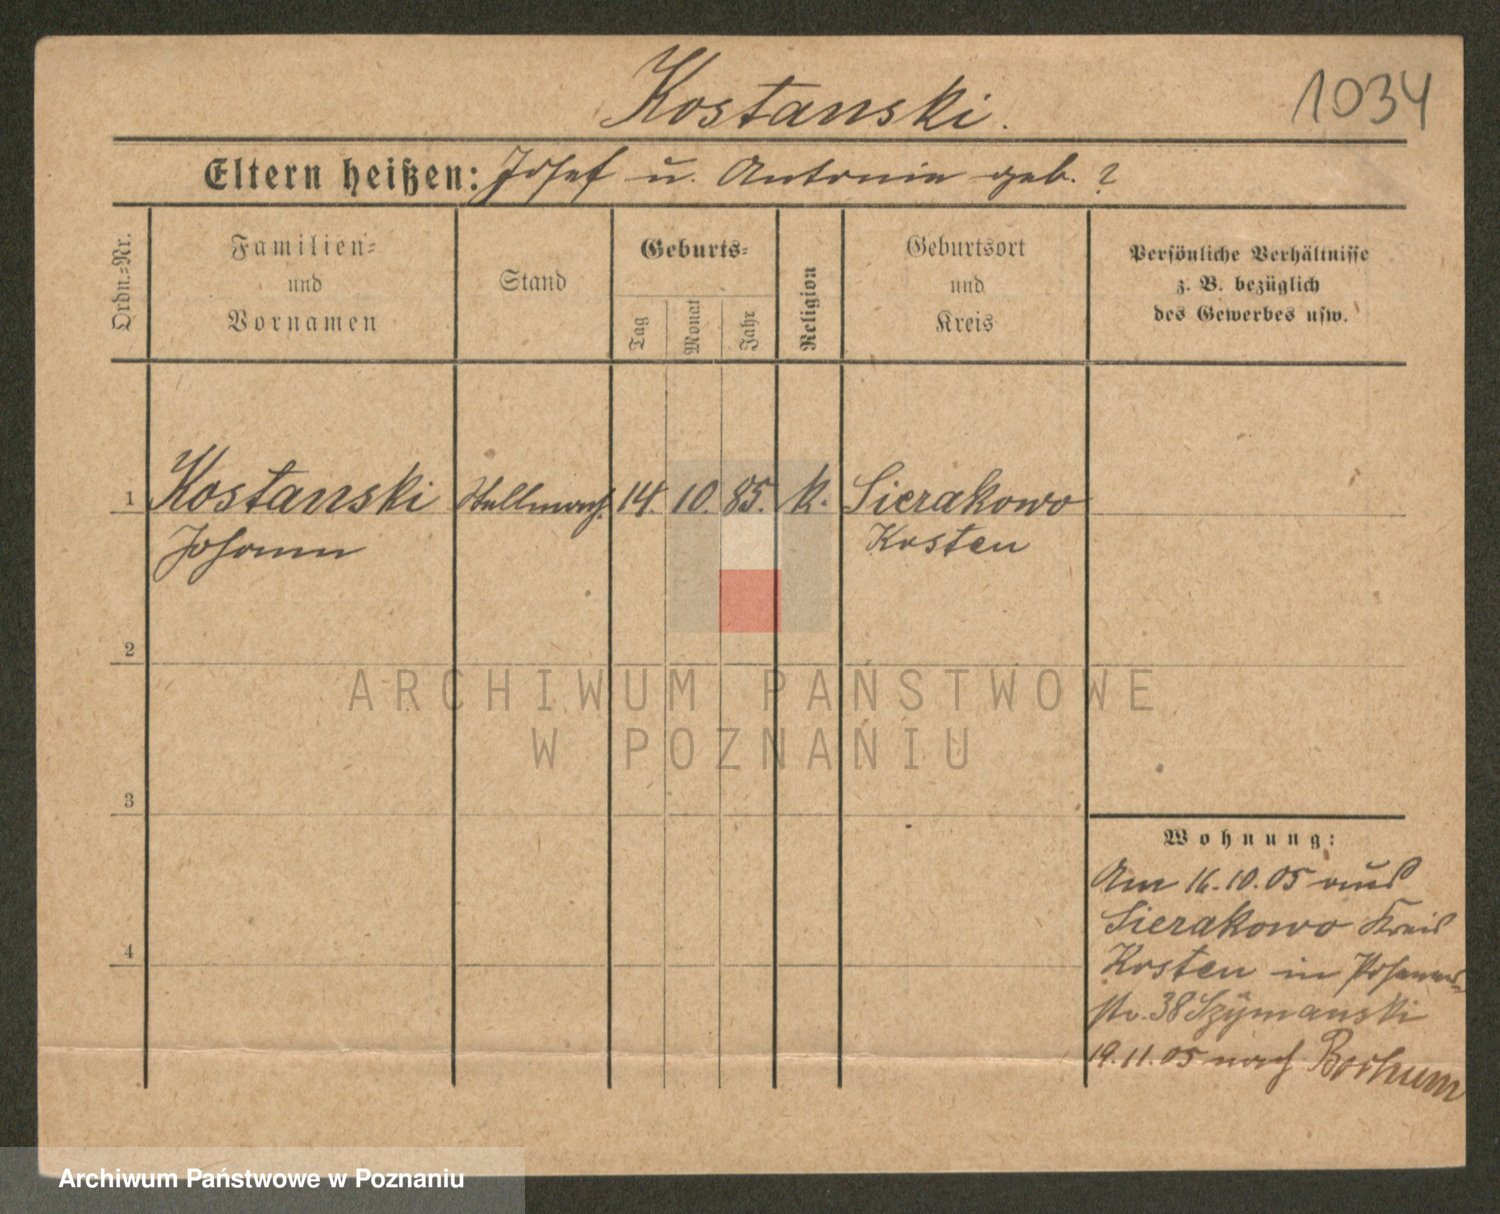 Kostanski.
1034
Eltern heißen: Josef u. Antonie geb. ?
Ordn.=Nr.
Familien=
und
Vornamen
Stand
Geburts=
Tag
Monat
Jahr
Religion
Geburtsort
und
Kreis
Persönliche Verhältnisse
z. B. bezüglich
des Gewerbes usw.
1 Kostanski Stellmach. 14. 10. 85. k. Sierakowo
Johann Kosten
2
3
4
Wohnung:
Am 16.10.05 aus
Sierakowo Kreis
Kosten in Posener=
str. 38 Szymanski
19.11.05 nach Bochum
ARCHIWUM PAŃSTWOWE
W POZNANIU
Archiwum Państwowe w Poznaniu